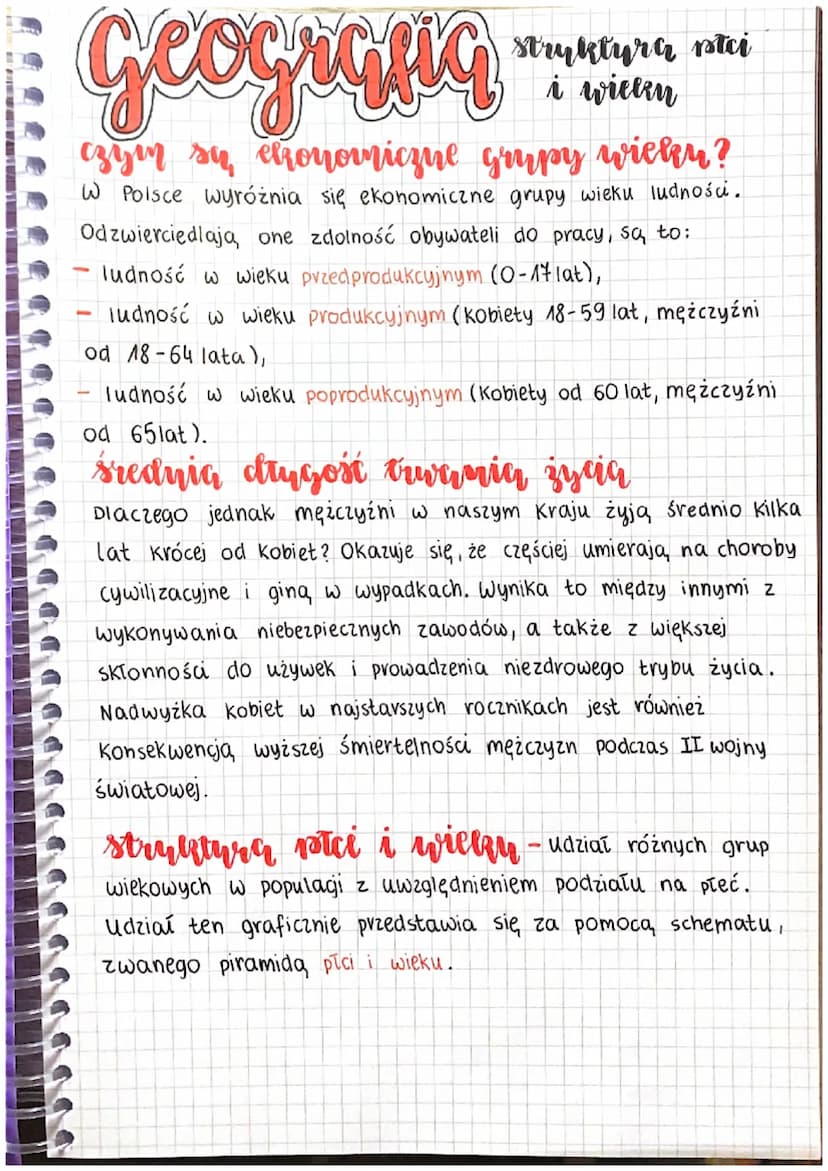 Geografia
struktura płci
i wieku
czym są ekonomiczne grupy wieku?
W Polsce wyróżnia się ekonomiczne grupy wieku ludności.
Odzwierciedlają one zdolność obywateli do pracy, są to:
- ludność w wieku przedprodukcyjnym (0-17 lat),
- ludność w wieku produkcyjnym (kobiety 18-59 lat, mężczyźni
od 18-64 lata),
- ludność w wieku poprodukcyjnym (kobiety od 60 lat, mężczyźni
od 65 lat).
średnia długość trwania życia
Dlaczego jednak mężczyźni w naszym kraju żyją średnio kilka
lat krócej od kobiet? Okazuje się, że częściej umierają na choroby
cywilizacyjne i giną w wypadkach. Wynika to między innymi z
wykonywania niebezpiecznych zawodów, a także z większej
skłonności do używek i prowadzenia niezdrowego trybu życia.
Nadwyżka kobiet w najstarszych rocznikach jest również
konsekwencją wyższej śmiertelności mężczyzn podczas II wojny
światowej.
struktura płci i wieku - udział różnych grup
wiekowych w populacji z uwzględnieniem podziału na płeć.
Udział ten graficznie przedstawia się za pomocą schematu,
zwanego piramidą płci i wieku.